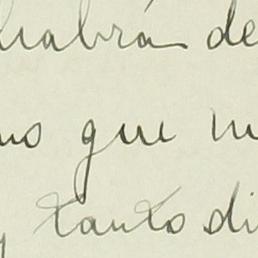 habrá de
que
y tanto di